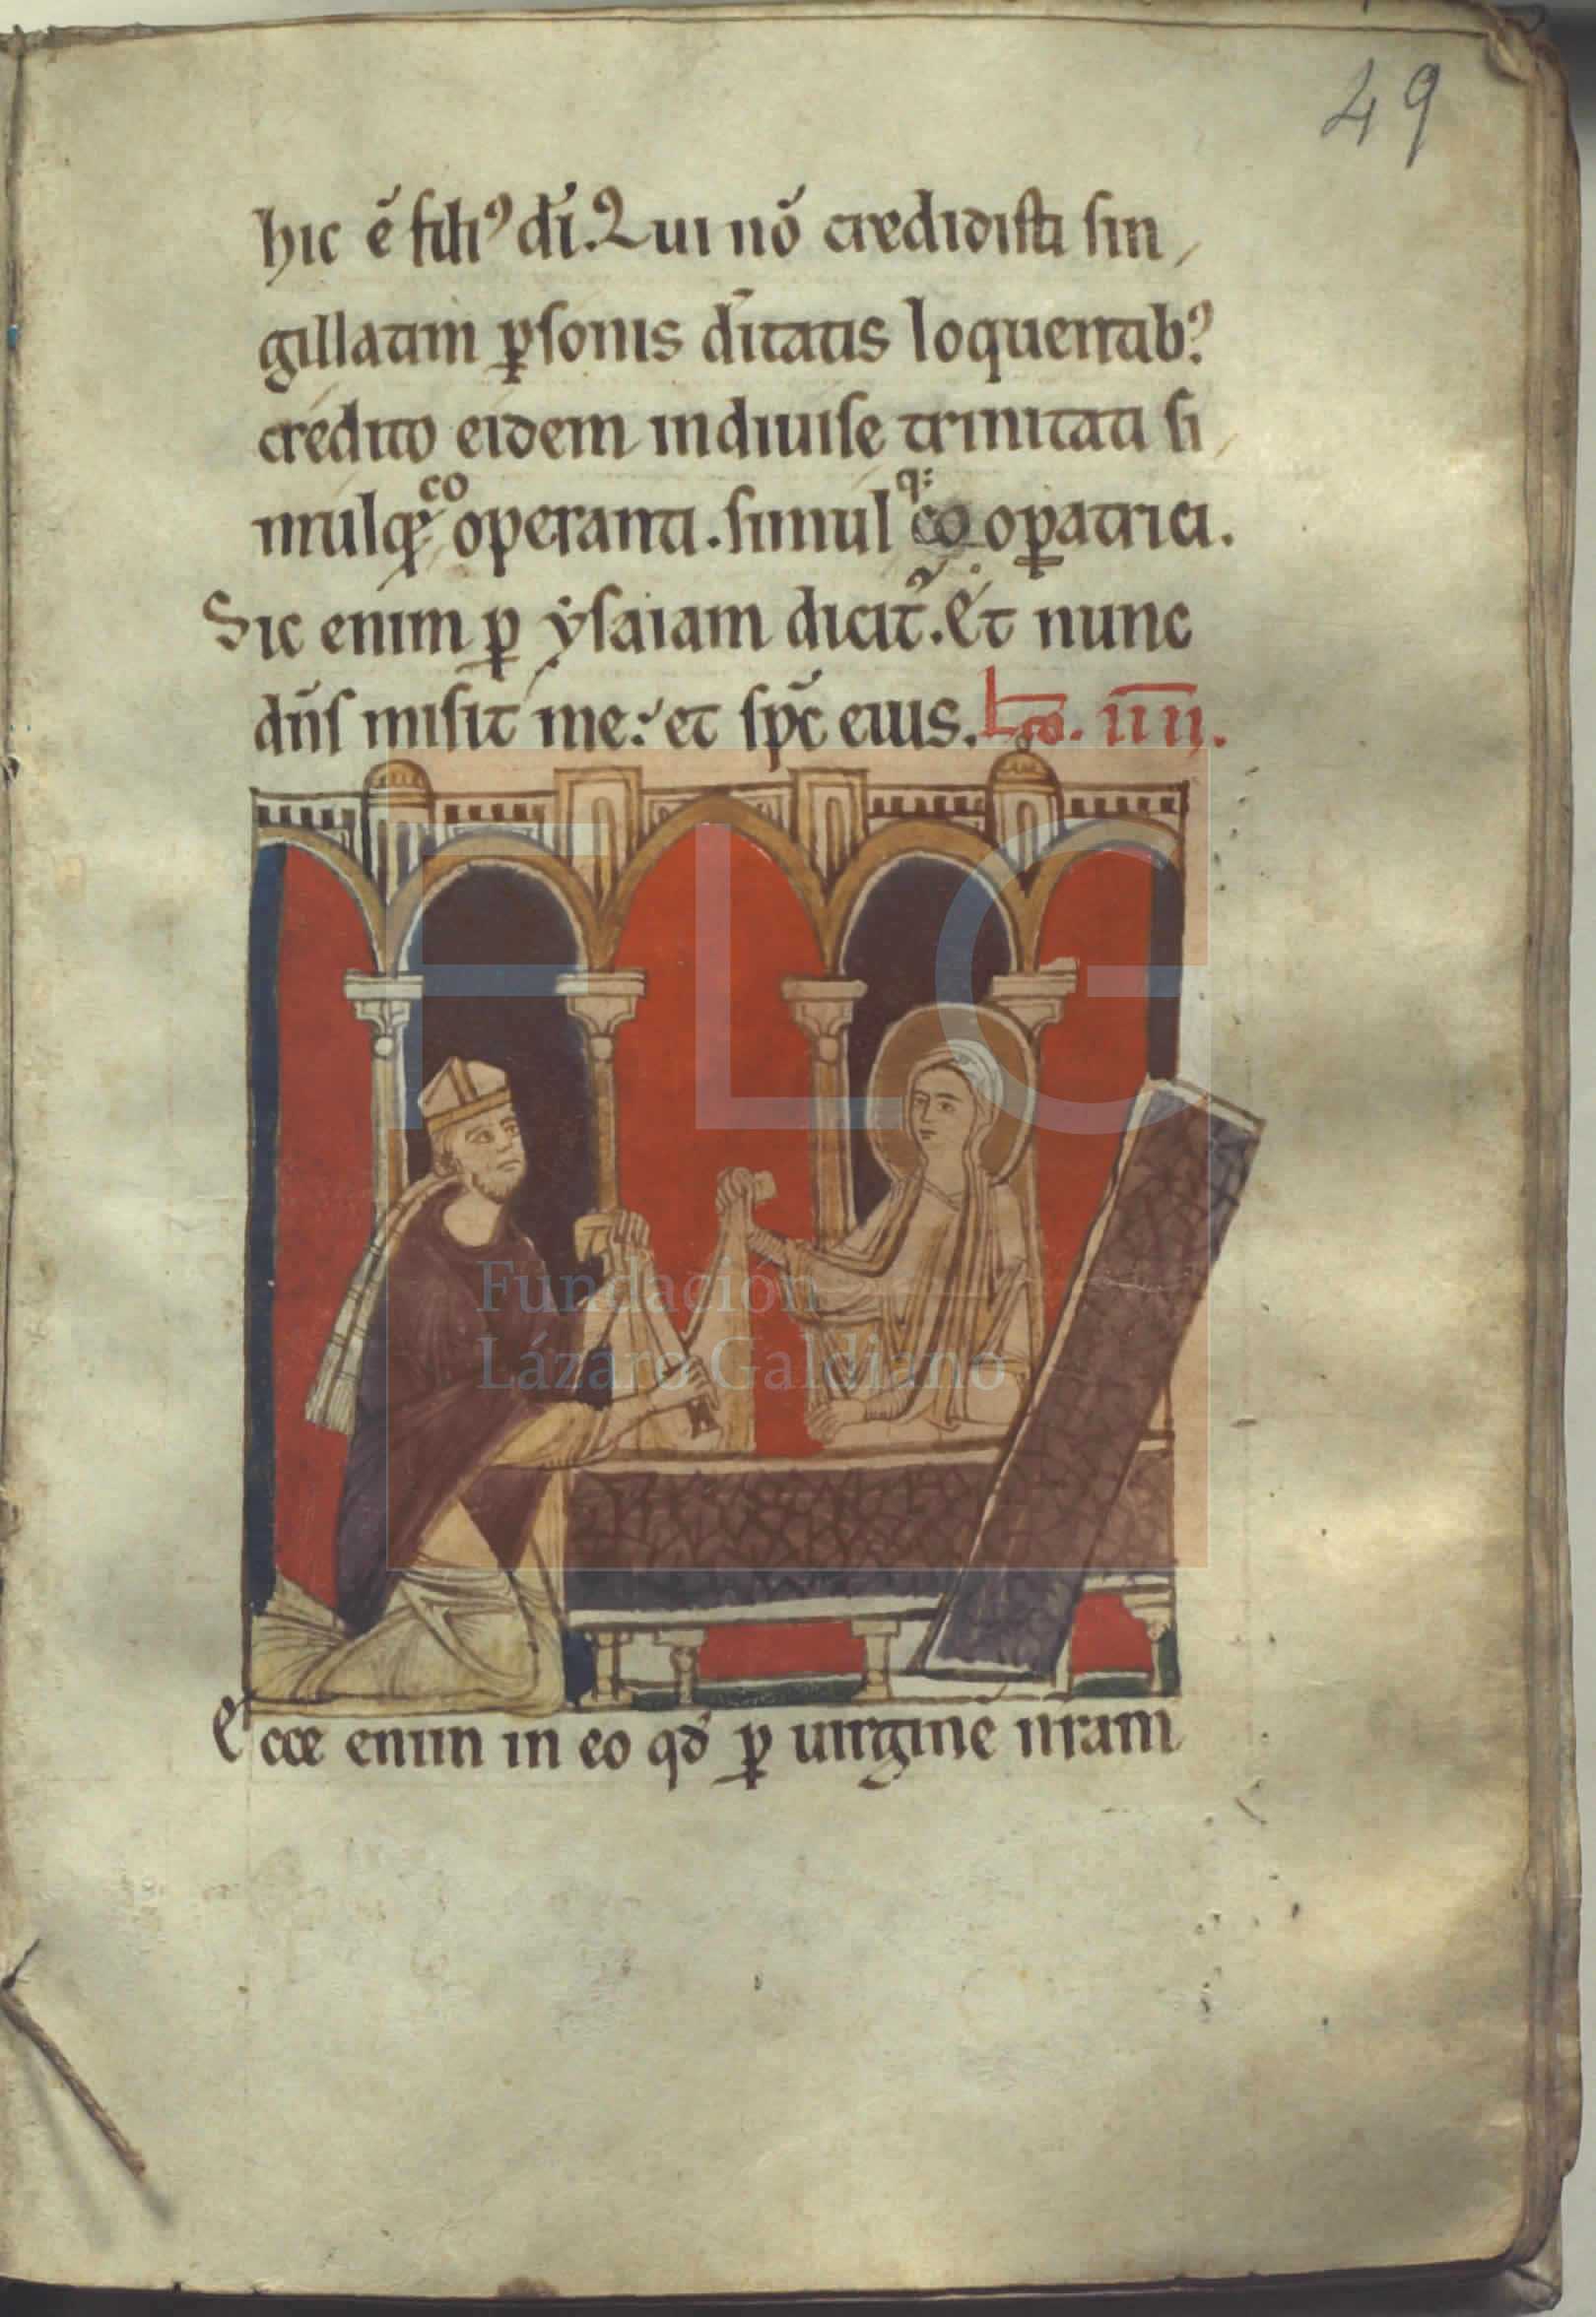 49
hic ē filiꝰ dī. Qui nō credidisti sin
gillatim ꝑsonis dītatis loquentibꝰ
credito eidem indiuise trinitati si
mulqꝫ cooperanti. simul qꝫ coopatrici.
Sic enim ꝑ ysaiam dicit᷑. Et nunc
dn̄s misit me: et sp̄c eius. Lc̄o. iiii.
FLG
Fundación
Lázaro Galdiano
Ecce enim in eo qđ ꝑ uirginē nr̄am